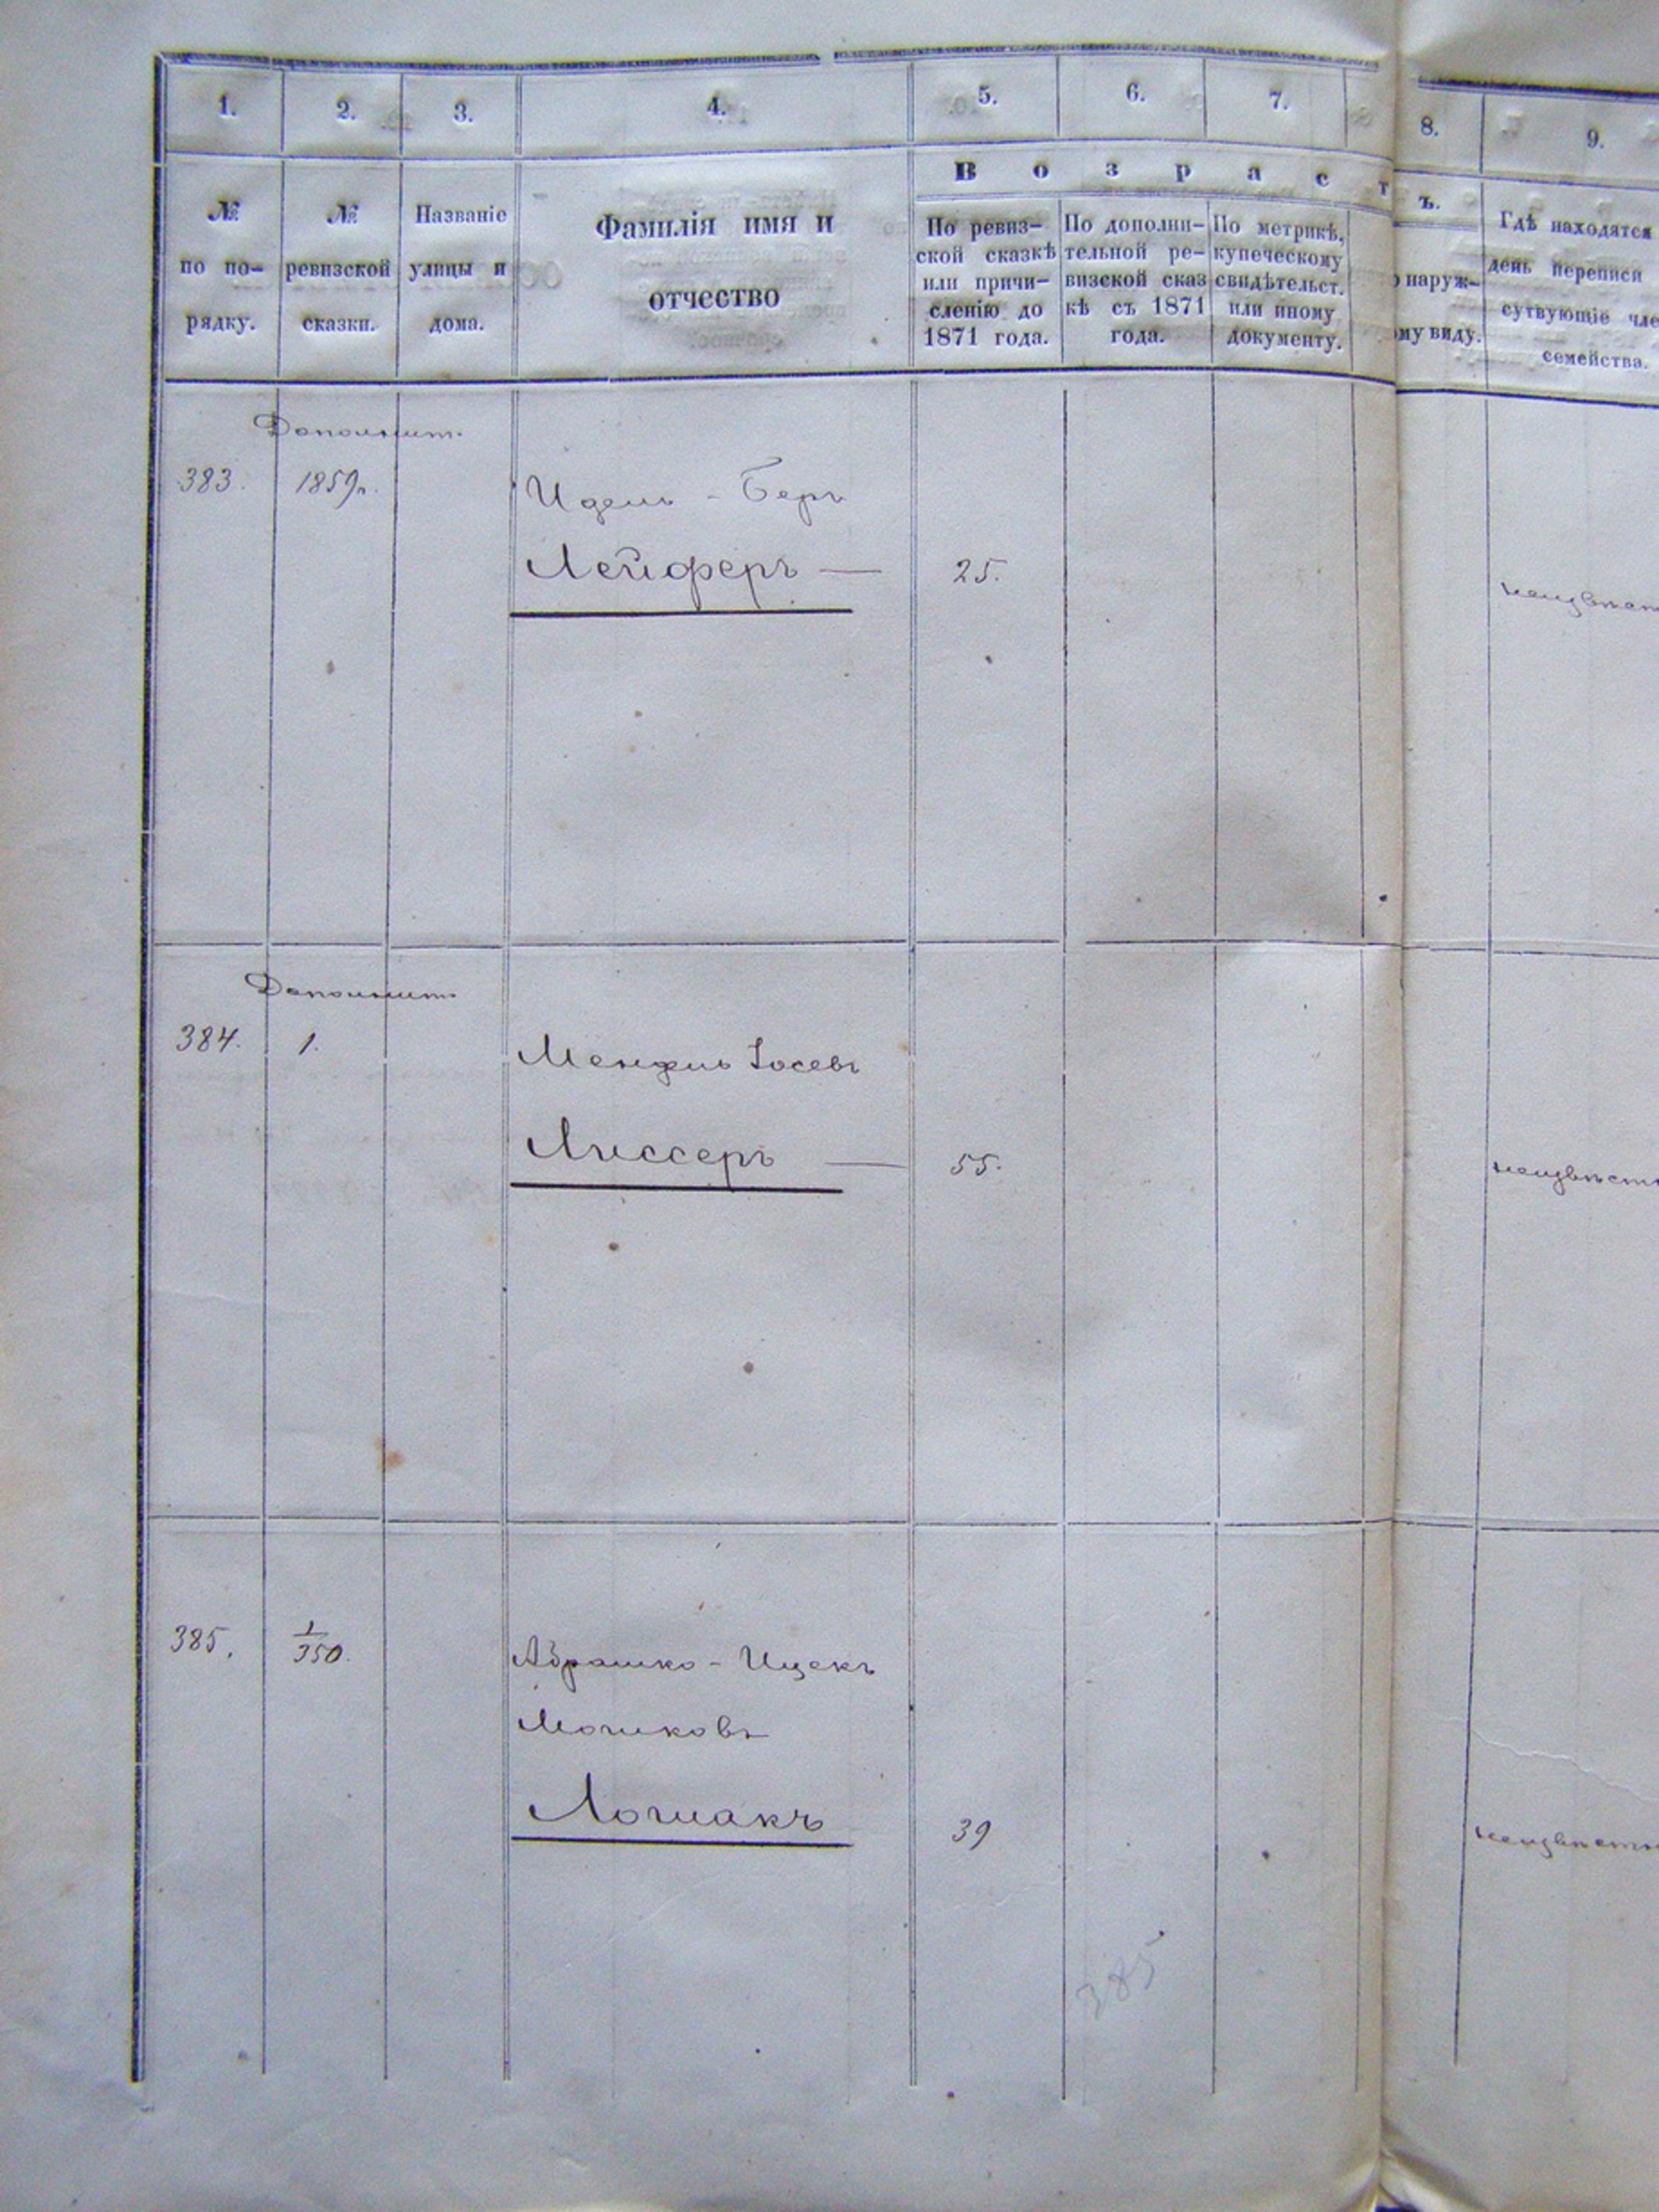 1.
2.
3.
4.
5.
6.
7.
8.
9.
№
по по-
рядку.
№
ревизской
сказки.
Названіе
улицы и
дома.
Фамилія имя и
отчество
Возраст
ъ.
По ревиз-
ской сказкѣ
или причи-
сленію до
1871 года.
По дополни-
тельной ре-
визской сказ
кѣ съ 1871
года.
По метрикѣ,
купеческому
свидѣтельст.
или иному
документу.
о наруж-
ому виду.
Гдѣ находятся
день переписи
сутвующіе чле
семейства.
Дополнит.
383.
1859г.
Идель - Беръ
Лейферъ —
25.
неизвѣст
Дополнит.
384.
1.
Мендель Іосевъ
Лиссеръ —
55.
неизвѣстн
385.
1/350.
Абрашко - Ицекъ
Мошковъ
Лошакъ
39
неизвѣстн
385